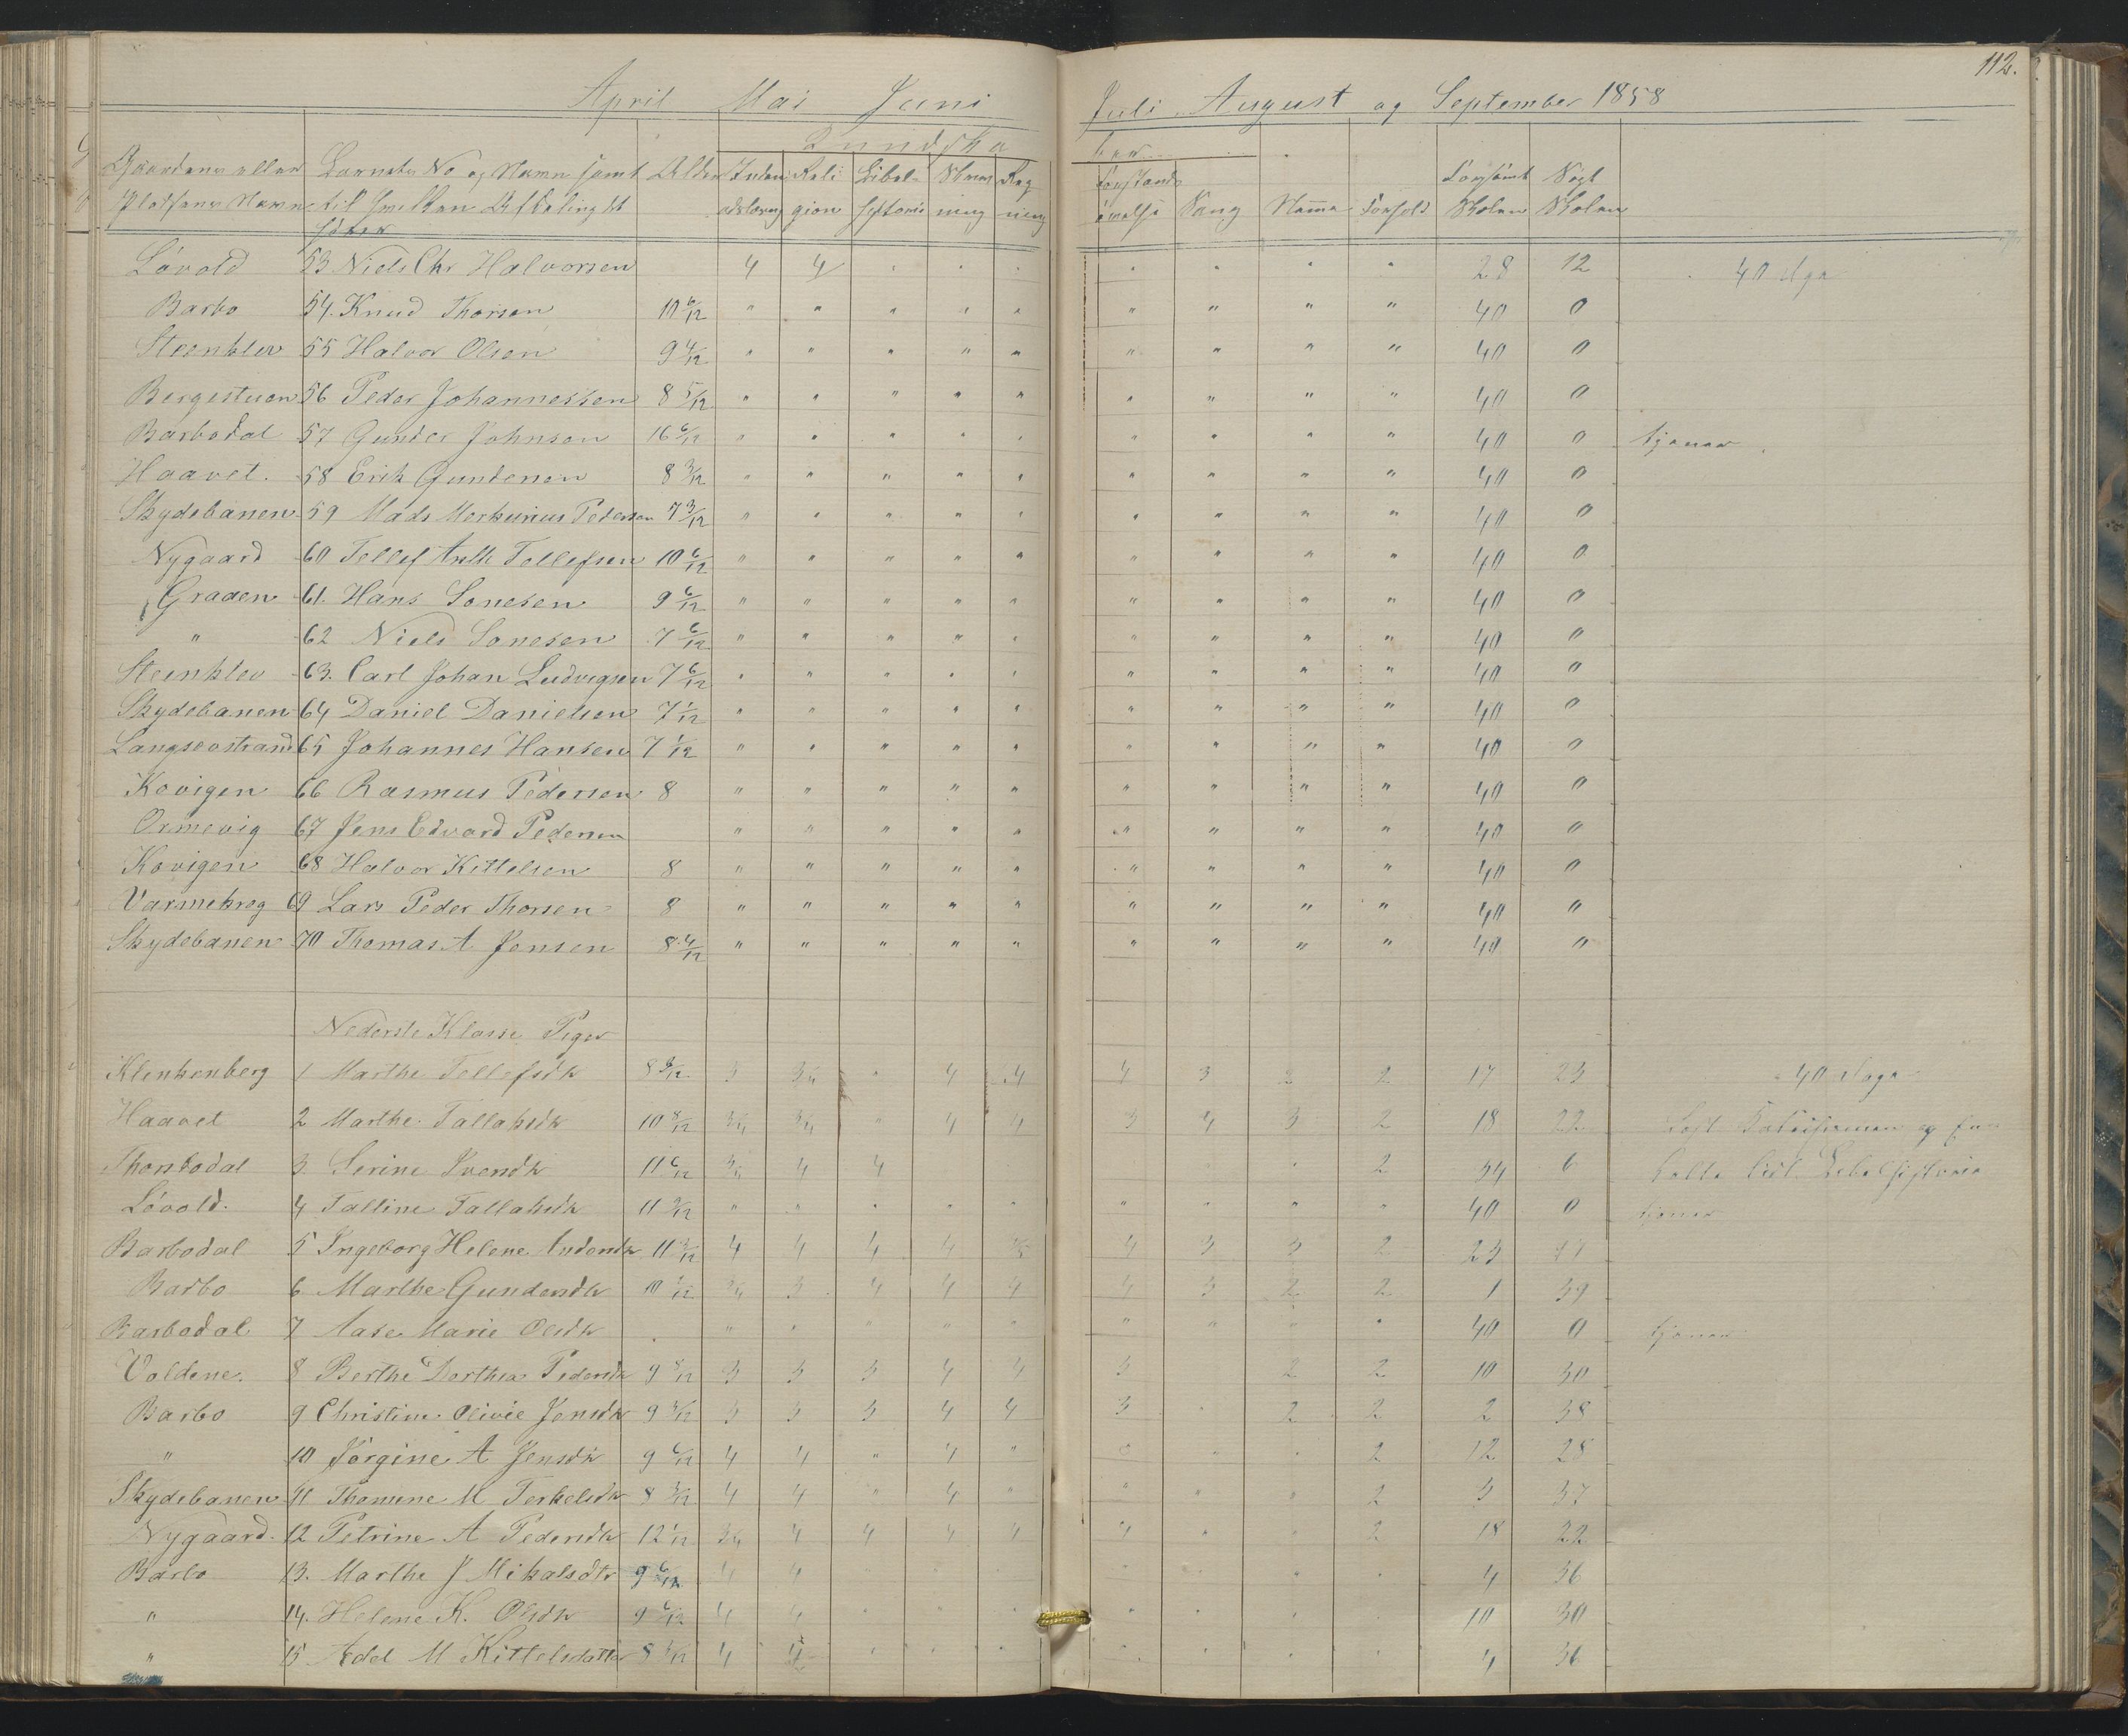 112.
April Mai Juni Juli August og September 1858
Kundska ber
Gaardens eller Barnets No og Navn samt Alder Inden Reli Bibel- Skriv Reg Forstands Sang Forsømt Søgt
Pladsens Navn til hvilken Afdeling det adslæsn gion historie ning ning øvelse Forhold Skolen Skolen
hører
Lövold 53 Niels Chr Halvorsen 4 4 " " " " " " " 28 12 40 dage
Barbo 54. Knud Thorsen 10 6/12 " " " " " " " " " 40 0
Steenklev 55 Halvor Olsen 9 4/12 " " " " " " " " " 40 0
Bergestuen 56 Peder Johannessen 8 5/12 " " " " " " " " " 40 0
Barbodal 57 Gunder Johnsen 16 6/12 " " " " " " " " " 40 0 tjener
Haavet. 58 Erik Gundersen 8 3/12 " " " " " " " " " 40 0
Skydebanen 59 Mads Merkurius Pedersen 7 3/12 " " " " " " " " " 40 0
Nygaard 60 Tellef Anth Tollefsen 10 6/12 " " " " " " " " " 40 0
Graaen 61. Hans Sonesen 9 6/12 " " " " " " " " " 40 0
" 62 Niels Sonesen 7 6/12 " " " " " " " " " 40 0
Steenklev 63. Carl Johan Ludvigsen 7 6/12 " " " " " " " " " 40 0
Skydebanen 64 Daniel Danielsen 7 1/12 " " " " " " " " " 40 0
Langseostrand 65 Johannes Hansen 7 1/12 " " " " " " " " " 40 0
Kovigen 66 Rasmus Pedersen 8 " " " " " " " " " 40 0
Ormevig 67 Jens Edvard Pedersen " " " " " " " " " 40 0
Kovigen 68 Halvor Kittelsen 8 " " " " " " " " " 40 0
Varmekrog 69 Lars Peder Thorsen 8 " " " " " " " " " 40 0
Skydebanen 70 Thomas A Jensen 8 4/12 " " " " " " " " " 40 0
Nederste Klasse Piger
Klenkenberg 1 Marthe Tellefsdtr 8 9/12 3 3/4 " 4 4 4 3 2 2 17 23 40 dage
Haavet 2 Marthe Tallaksdtr 10 8/12 3/4 3/4 " 4 4 3 4 3 2 18 22 og
Thorsbodal 3 Serine Svendtr 11 6/12 3/4 4 4 2 34 6 Bibelhistorie
Lövold. 4 Talline Tallaksdtr 11 3/12 " " " " " " " " " 40 0 tjener
Barbodal 5 Ingeborg Helene Andersdtr 11 3/12 4 4 4 4 4 3 3 2 23 17
Barbo 6 Marthe Gundersdtr 10 1/12 3/4 3 4 4 4 4 3 2 2 1 39
Barbodal 7 Aase Marie Olsdtr " " " " " " " " " 40 0 tjener
Voldene. 8 Berthe Dorthea Pedersdtr 9 8/12 3 3 3 4 4 3 2 2 10 30
Barbo 9 Christine Olivie Jensdtr 9 3/12 3 3 3 4 4 3 " 2 2 2 38
" 10 Jörgine A Jensdtr 9 6/12 4 4 " 4 " " " " 2 12 28
Skydebanen 11 Thomine M Terkelsdtr 8 3/12 4 4 " 4 " " " " 2 3 37
Nygaard. 12 Petrine A Pedersdtr 12 1/12 3/4 4 4 4 4 4 " " 2 18 22
Barbo 13. Marthe J Mikalsdtr 9 6/12 4 4 " " " " " " " 4 36
" 14. Helene K. Olsdtr 9 6/12 4 4 " " " " " " 10 30
" 15 Adel M Kittelsdatter 8 3/12 4 4 " " " " " " " 4 36